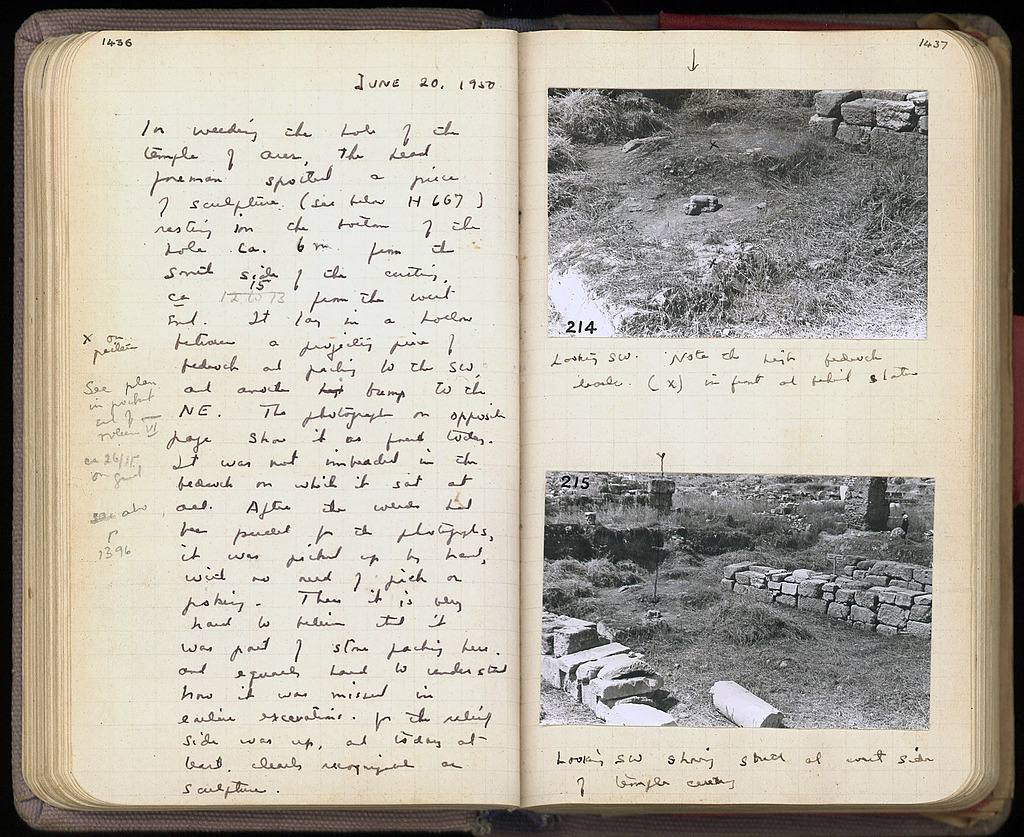 1436
JUNE 20, 1950
In weeding the hole of the
temple of Ares, the head
foreman spotted a piece
of sculpture (see below H 667)
resting on the bottom of the
hole ca. 6 m. from the
south side of the cutting,
ca 15 from the west
end. It lay in a hollow
between a projecting piece of
bedrock and packing to the SW,
and another bump to the
NE. The photographs on opposite
page show it as found today.
It was not imbedded in the
bedrock on which it sat at
all. After the weeds had
been pulled for the photographs,
it was picked up by hand,
with no need of pick or
poking. Thus it is very
hard to believe that it
was part of stone packing here.
and equally hard to understand
how it was missed in
earlier excavations. for the relief
side was up, and today at
least, clearly recognized as
sculpture.
X on
See plan
in pocket
end of
volume VI
ca 26/
see also
p
1396
1437
↓
214
Looking SW. Note the high bedrock
(X) in front and behind
215
Looking SW showing at west side
of temple cutting